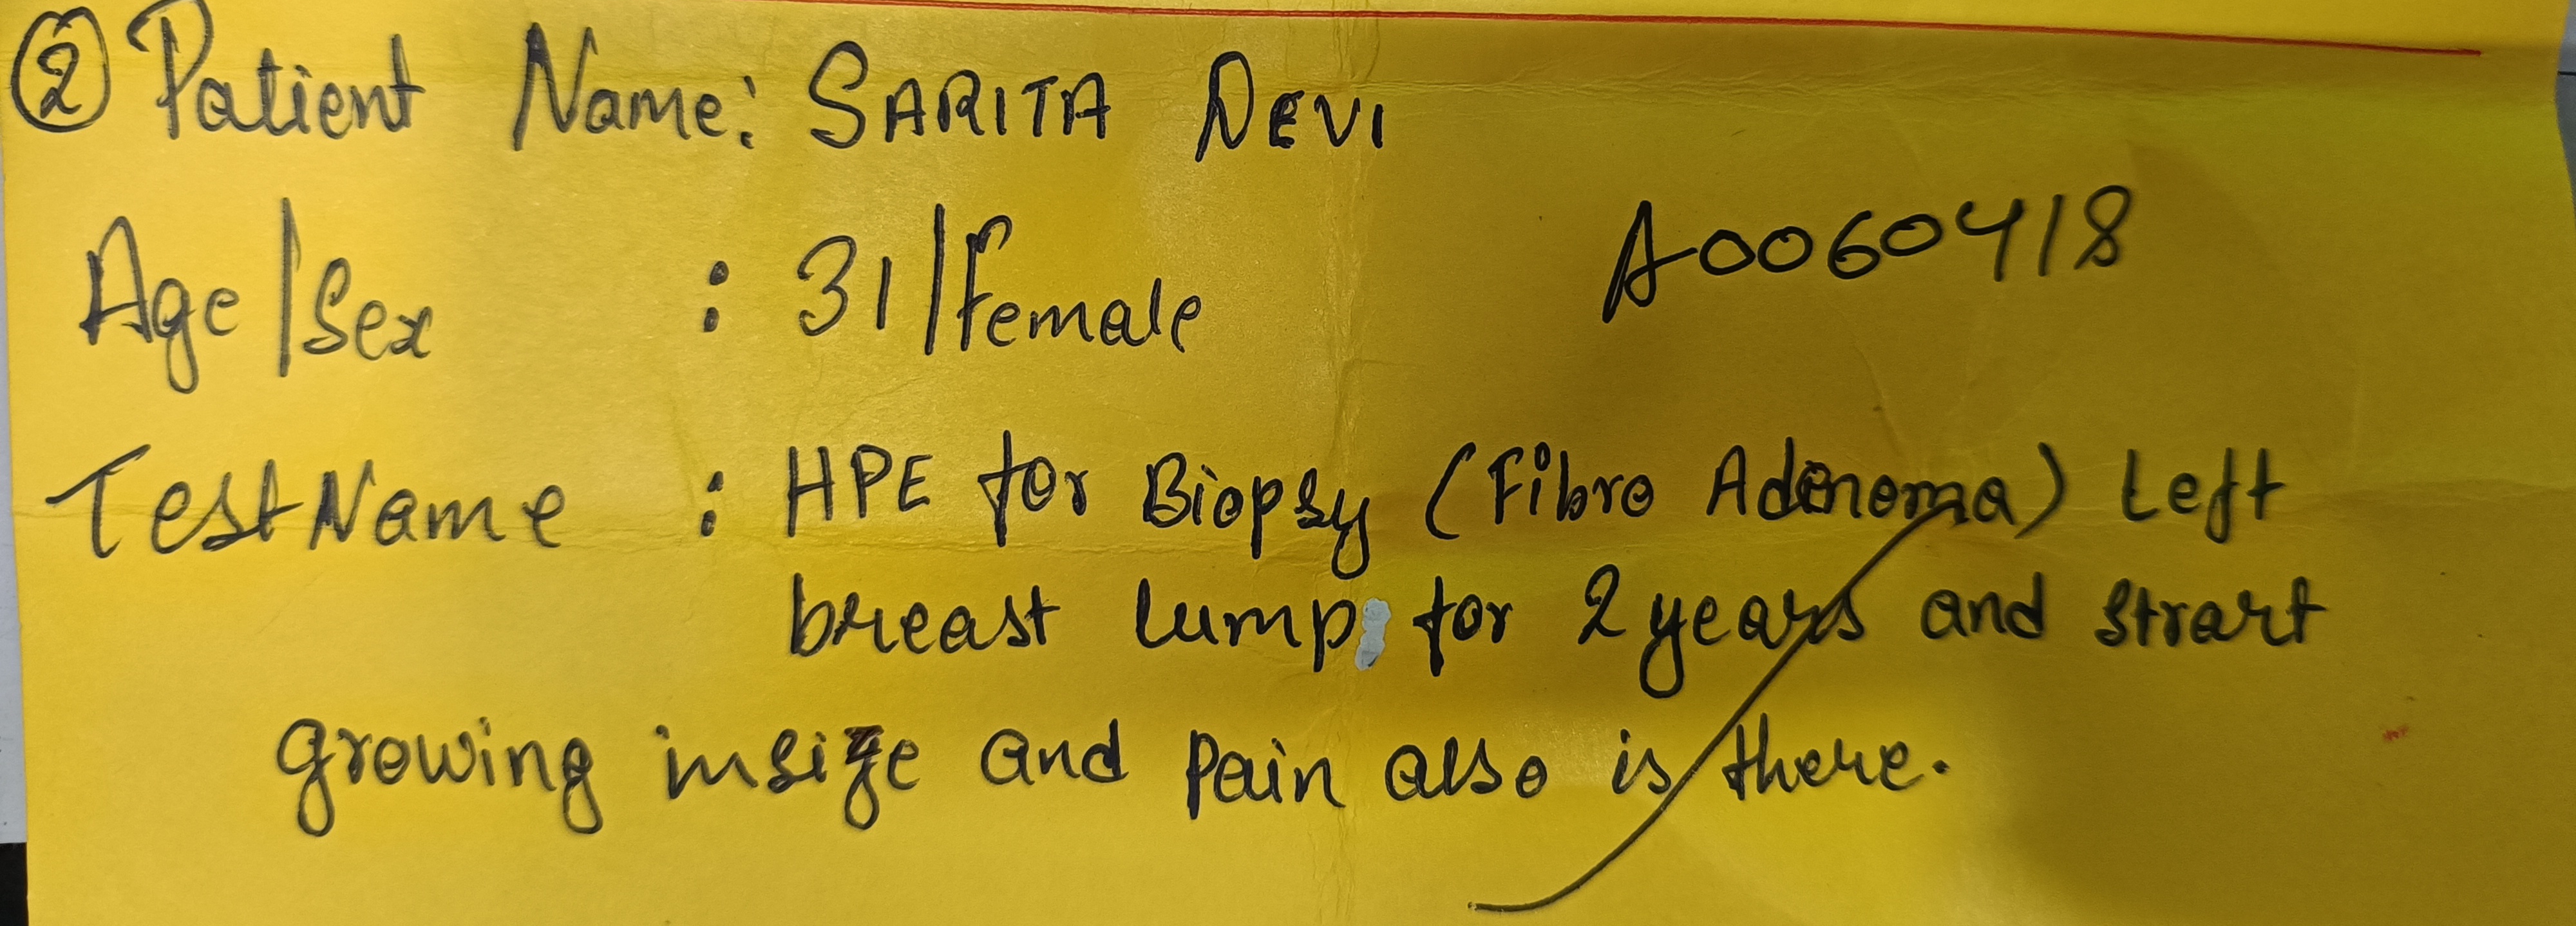 ② Patient Name: SARITA DEVI
Age/Sex : 31/Female A0060418
Test Name : HPE for Biopsy (Fibro Adenoma) Left
breast lump for 2 years and strart
growing insize and Pain also is there.